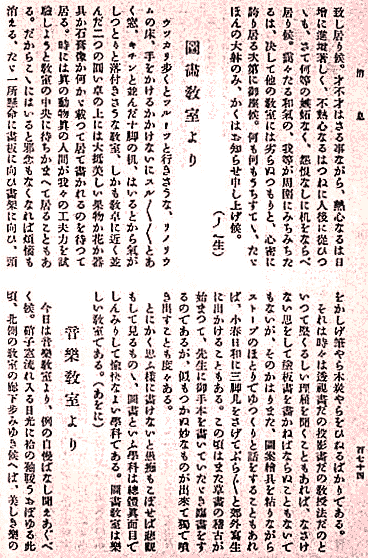 消息
百七十四
致し居り候。才不才はさる事ながら、熱心なるは日
增に進境著しく、不熱心なるはつねに人後に從ひつ
ゝも、さて何等の嫉妬なく、怨恨なしに机をならべ
居り候。靄々たる和氣の、我等が周圍にみちみちた
るは、決して他の敎室には劣らぬつもりと、心密に
誇り居る次第に御座候。何も何もうちすてゝ、たゞ
ほんの大躰のみ、かくはお知らせ申し上げ候。
（ノ一生）
圖畫敎室より
ウツカリ歩くとツルーツと行きさうな、リノリウ
ムの床、手をかけるかかけないにスル〱〱とあ
く窓、キチンと並んだ十脚の机、はいるとから氣が
しつとりと落付きさうな敎室、しかも敎卓に近く並
んだ二つの圓い卓の上には大抵美しい果物か花か器
具か石膏像か何かゞ載つて居て畫かれるのを待つて
居る。時には眞の動物眞の人間が我々の工夫力を試
驗しようと敎室の中央に待ちかまへて居ることもあ
る。だからこゝにはいると邪念もなくなれば煩悶も
消える、たゞ一所懸命に畫板に向ひ畫架に向ひ、頭
をかしげ筆やら木炭やらをひねるばかりである。
それは時々は透視畫だの投影畫だの敎授法だのと
いつて堅くるしい理窟を聞くこともあれば、なさけ
ない思をして塗板畫を畫かねばならぬこともないで
もないが、そのかはりまた、圖案繪具を粘りながら
ストーブのほとりでゆつくりと話をすることもあれ
ば、小春日和に三脚几をさげてぶら〱と郊外寫生
に出かけることもある。この頃はまた草畫の稽古が
始まつて、先生に御手本を畫いていたゞき臨畫をす
るのであるが、似もつかぬ妙なものが出來て獨で噴
き出すことも度々ある。
とにかく思ふ樣に畫けないと愚痴もこぼせば悲觀
もして見るものゝ、圖畫といふ學科は總體眞面目で
しんみりして愉快なよい學科である。圖畫敎室は樂
しい敎室である。（あをに）
音樂敎室より
今日は音樂敎室より、例の自慢ばなし聞えあぐべ
く候。硝子窓流れ入る日光に袷の獨覗うらぼゆる此
頃、北側の敎室の廊下歩みゆき候へば、美しき樂